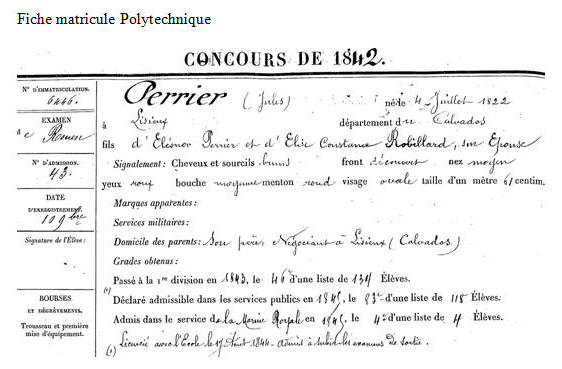 Fiche matricule Polytechnique
CONCOURS DE 1842.
N° D'IMMATRICULATION.
6446.
EXAMEN
de Rouen
N° D'ADMISSION.
43.
DATE
D'ENREGISTREMENT.
10 9bre
Signature de l'Élève:
BOURSES
ET DÉGRÈVEMENTS.
Trousseau et première
mise d'équipement.
Perrier (Jules) né le 4 Juillet 1822
à Lisieux département du Calvados
fils d'Eléonor Perrier et d'Elise Constance Robillard, son Epouse
Signalement: Cheveux et sourcils bruns front découvert nez moyen
yeux roux bouche moyenne menton rond visage ovale taille d'un mètre 61 centim.
Marques apparentes:
Services militaires:
Domicile des parents: Son père Négociant à Lisieux (Calvados)
Grades obtenus:
Passé à la 1re division en 1843, le 46e d'une liste de 134 Élèves.
(1)
Déclaré admissible dans les services publics en 1845, le 83e d'une liste de 118 Élèves.
Admis dans le service de la Marine Royale en 1845, le 4e d'une liste de 4 Élèves.
(1) Licencié avec l'Ecole le 17 Août 1844 - Admis à subir les examens de sortie.